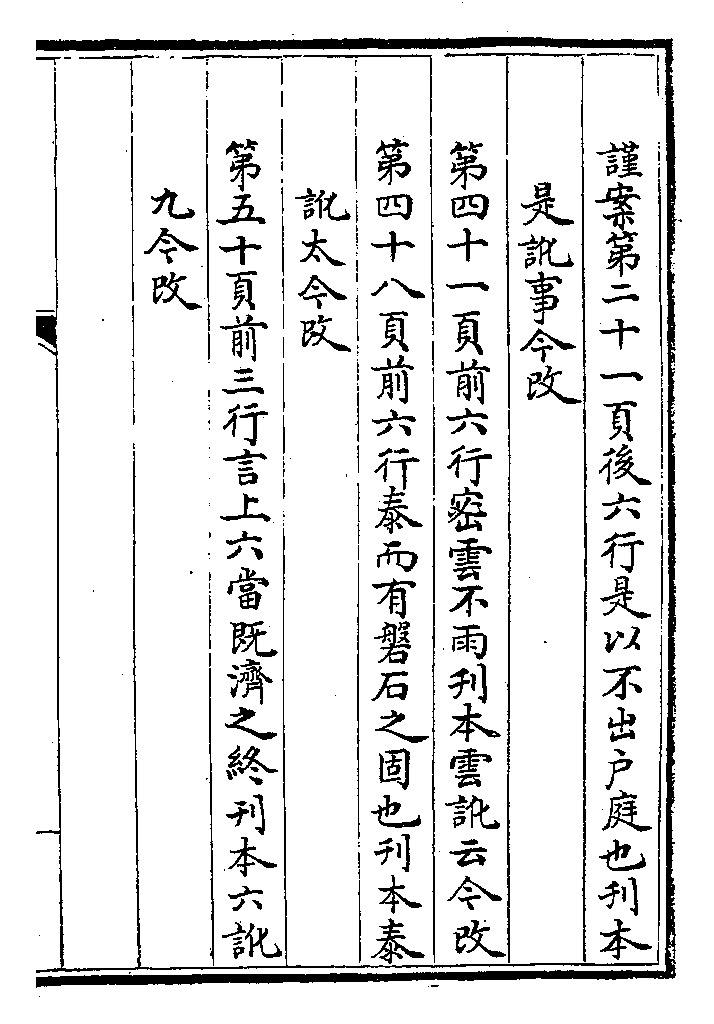 謹案第二十一頁後六行是以不出户庭也刋本
是訛事今改
第四十一頁前六行密雲不雨刋本雲訛云今改
第四十八頁前六行泰而有磐石之固也刋本泰
訛太今改
第五十頁前三行言上六當既濟之終刋本六訛
九今改